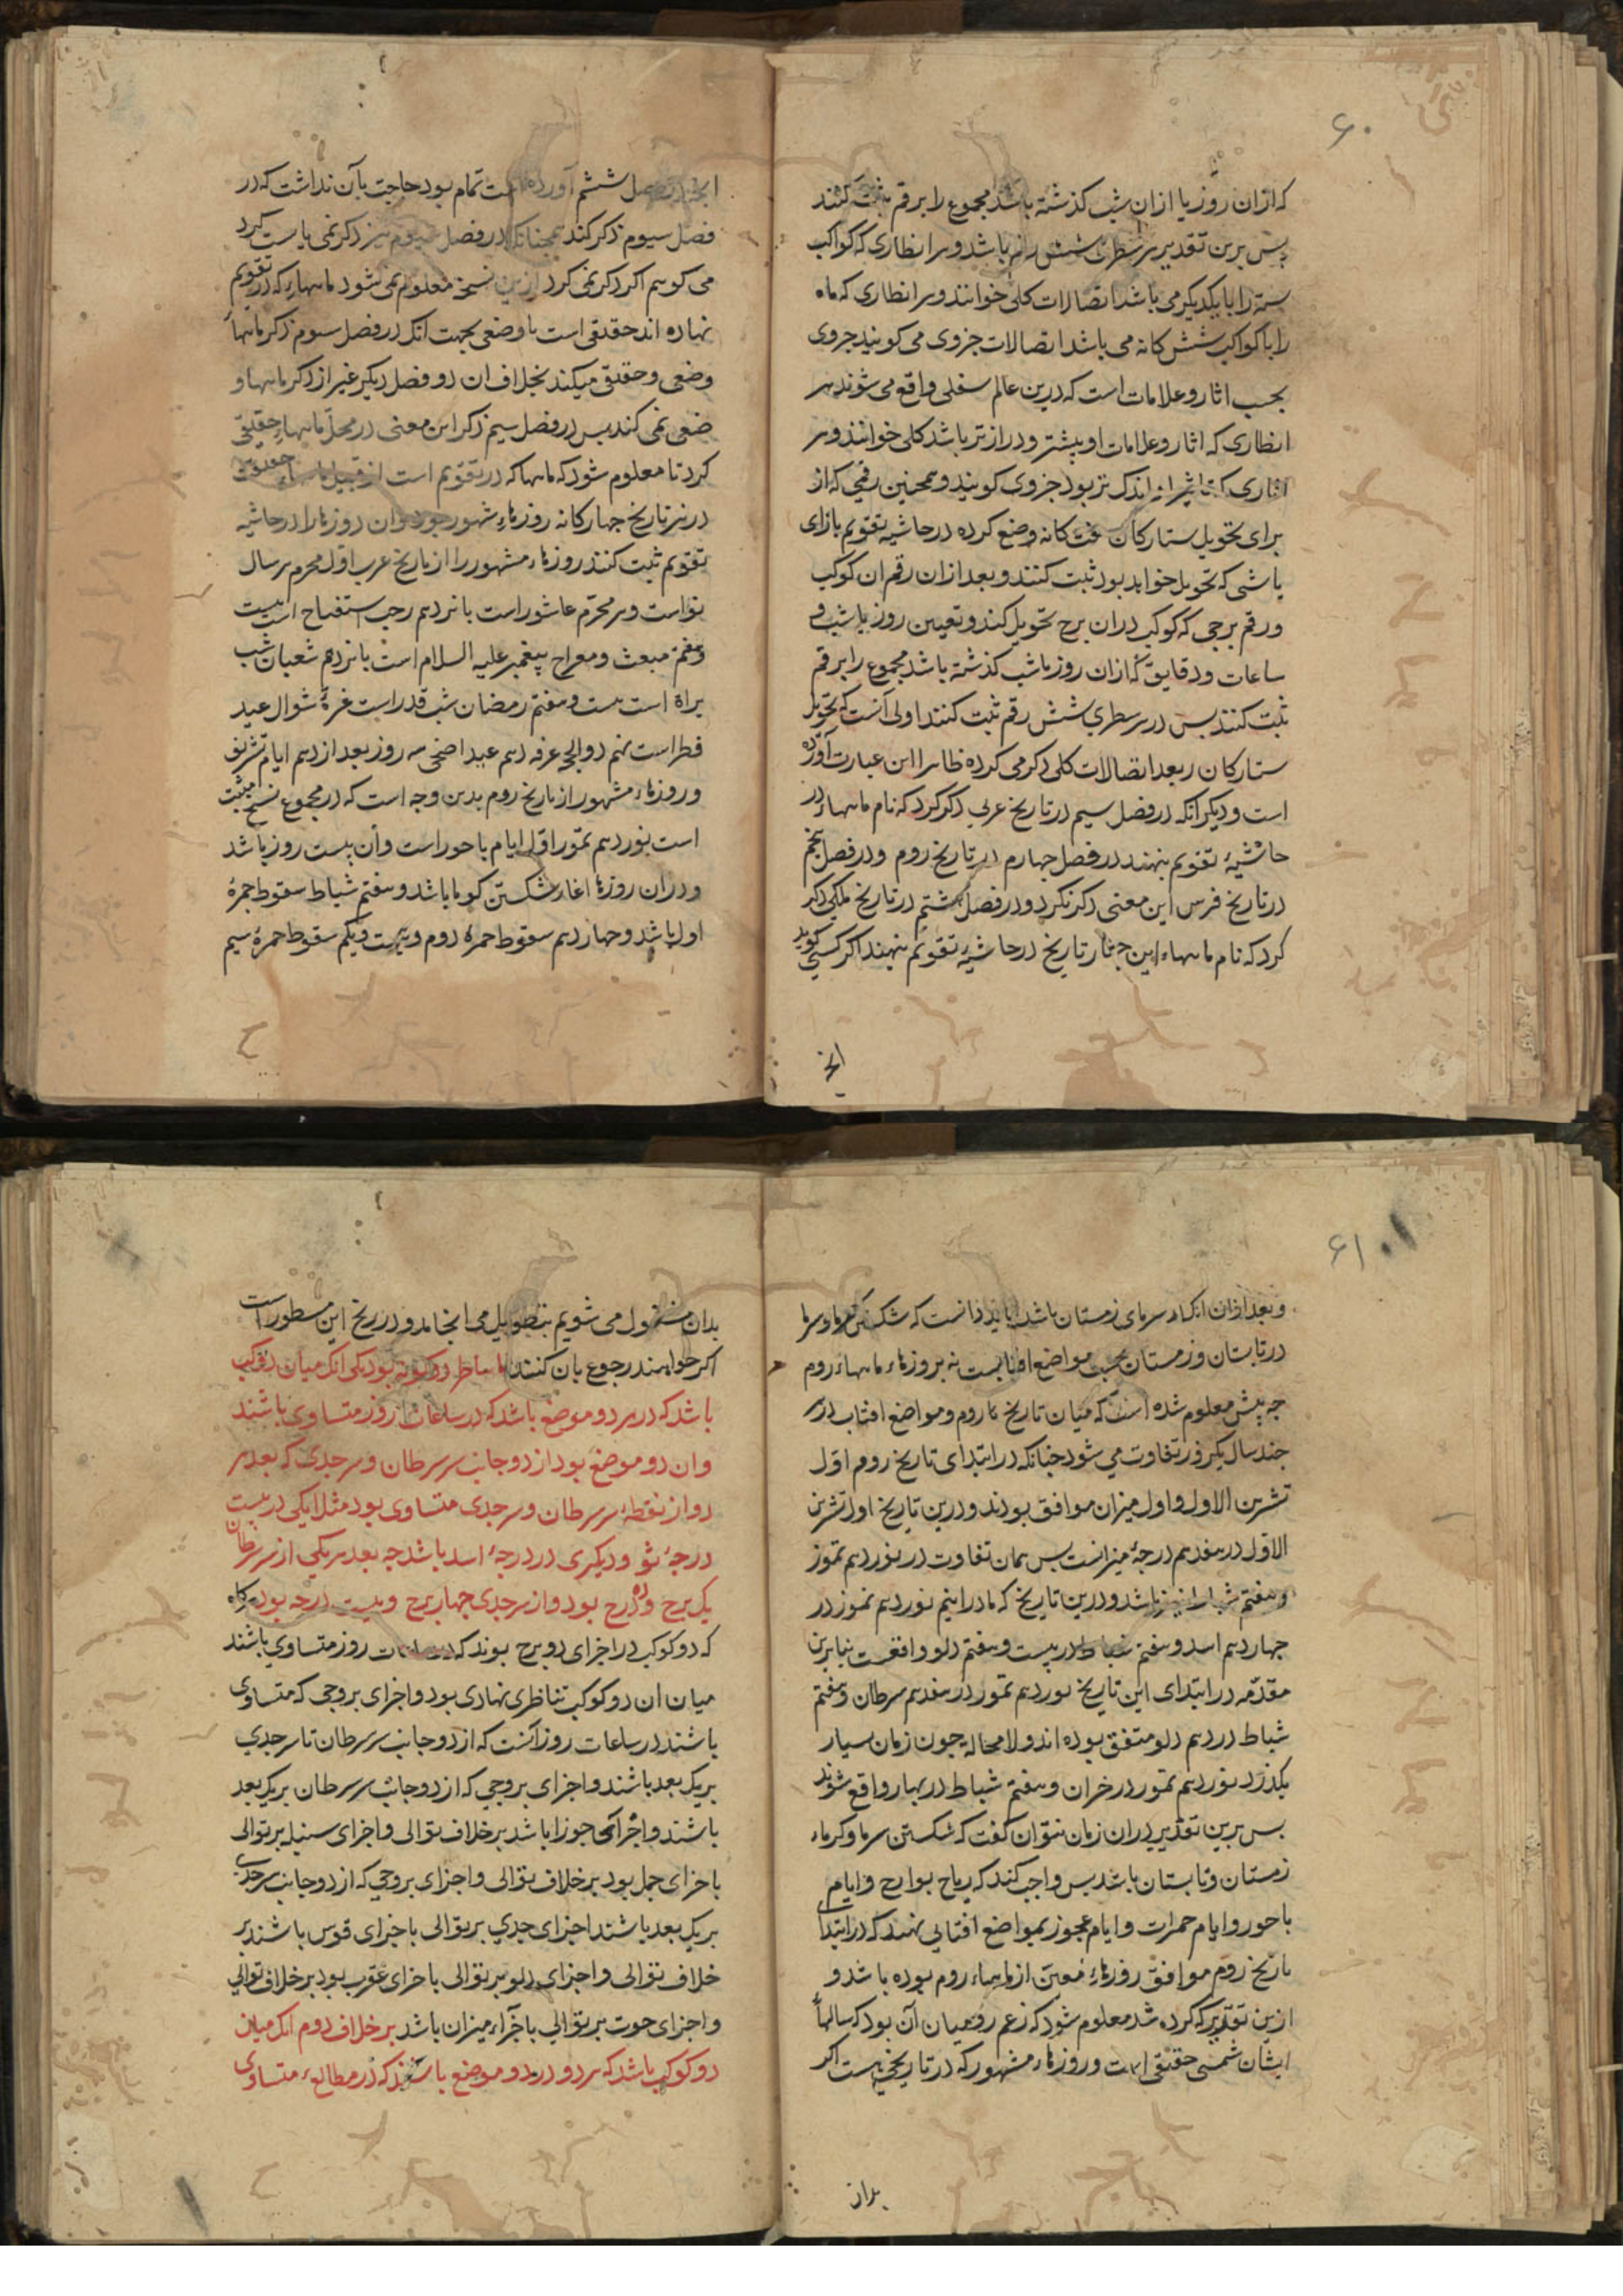 ۶۰
که ازان روز یا ازان شب کذشته باشد مجموع را برقم ثبت کنند
پس برین تقدیر هر سطری شش رقم باشد و هر انظاری که کواکب
سته را با یکدیکر می باشد اتصالات کلی خوانند و هر انظاری که ماه
را با کواکب شش کانه می باشد اتصالات جزوی می کویند جزوی
بحسب اثار و علامات است که درین عالم سفلی واقع می شوند هر
انظاری که اثار و علامات او بیشتر و دراز تر باشد کلی خوانند و هر
اندک تر بود جزوی کویند و همچنین رقمی که از
برای تحویل ستارکان هفت کانه وضع کرده در حاشیه تقویم بازای
یا شبی که تحویل خواهد بود ثبت کنند و بعد ازان رقم ان کوکب
و رقم برجی که کوکب دران برج تحویل کند و تعیین روز یا شب و
ساعات و دقایق که ازان روز یا شب کذشته باشد مجموع را برقم
ثبت کنند پس در هر سطری شش رقم ثبت کنند اولی آنست که تحویل
ستارکان بعد اتصالات کلی ذکر می کرد ظاهرا این عبارت آورده
است و دیکر آنکه در فصل سیم در تاریخ عربی ذکر کرد که نام ماهها در
حاشیهٔ تقویم نهند در فصل چهارم در تاریخ روم و در فصل پنجم
در تاریخ فرس این معنی ذکر نکرد و در فصل ششم در تاریخ ملکی ذکر
کرد که نام ماهها این چهار تاریخ در حاشیهٔ تقویم نهند اکر کسی کوید
انچ
فصل ششم آورده است تمام بود حاجت بآن نداشت که در
فصل سیوم ذکر کند همچنانکه در فصل سیوم نیز ذکر نمی بایست کرد
می کویم اکر ذکر نمی کرد ازین نسخه معلوم نمی شود ماهها که در تقویم
نهاده اند حقیقی است یا وضعی بجهت انک در فصل سوم ذکر ماهها
وضعی و حقیقی میکند بخلاف ان دو فصل دیکر غیر از ذکر ماهها و
ضعی نمی کند پس در فصل سیم ذکر این معنی در محل ماههاء حقیقی
کرد تا معلوم شود که ماهها که در تقویم است از قبیل ماههاء حقیقیت
در هر تاریخ چهارکانه روزهاء مشهور بود و ان روزها را در حاشیه
تقویم ثبت کنند روزهاء مشهور را از تاریخ عرب اول محرم سر سال
نواست و دهم محرم عاشوراست پانزدهم رجب استفتاح است بیست
و هفتم مبعث و معراج پیغمبر علیه السلام است پانزدهم شعبان شب
براة است بیست و هفتم رمضان شب قدر است غرهٔ شوال عید
فطر است نهم ذوالحجه عرفه دهم عید اضحی سه روز بعد از دهم ایام تشریق
و روزهاء مشهور از تاریخ روم بدین وجه است که در مجموع نسخ مثبت
است نوزدهم تموز اول ایام باحور است و آن بیست روز باشد
و دران روزها اغاز شکستن کرما باشد و هفتم شباط سقوط جمرهٔ
اول باشد و چهاردهم سقوط جمرهٔ دوم و بیست و یکم سقوط جمرهٔ سیم
۶۱
و بعد ازان انکساء سرمای زمستان باشد باید دانست که شکستن کرما و سرما
در تابستان و زمستان بحسب مواضع افتابست نه بروزهاء ماههاء روم
چه پیش معلوم شده است که میان تاریخ روم و مواضع افتاب در هر
چند سال یکروز تفاوت می شود چنانکه در ابتدای تاریخ روم اول
تشرین الاول و اول میزان موافق بودند و درین تاریخ اول تشرین
الاول در هفدهم درجهٔ میزانست پس همان تفاوت در نوزدهم تموز
و هفتم شباط نیز باشد و درین تاریخ که ما دراینیم نوزدهم تموز در
چهاردهم اسد و هفتم شباط در بیست و هفتم دلو واقعست بنابرین
مقدمه در ابتدای این تاریخ نوزدهم تموز در هفدهم سرطان و هفتم
شباط در دهم دلو متفق بوده اند و لامحاله چون زمان بسیار
بکذرد نوزدهم تموز در خزان و هفتم شباط در بهار واقع شوند
پس برین تقدیر دران زمان نتوان کفت که شکستن سرما و کرماء
زمستان و تابستان باشد پس واجب کند که ریاح بوارح و ایام
باحور و ایام جمرات و ایام عجوز بمواضع افتابی نهند که در ابتداء
تاریخ روم موافق روزهاء معین از ماههاء روم بوده باشد و
ازین تقدیر که کرده شد معلوم شود که زعم رومیان آن بود که سالهاء
ایشان شمسی حقیقی است و روزهاء مشهور که در تاریخی هست اکر
بدان
بدان مشغول می شویم بتطویل می انجامد و در زیج این مسطور است
اکر خواهند رجوع بان کنند اما تناظر دو کونه بود یکی انک میان دو کوکب
باشد که در هر دو موضع باشد که در ساعات روز متساوی باشند
وان دو موضع بود از دو جانب سر سرطان و سر جدی که بعد هر
دو از نقطهٔ سر سرطان و سر جدی متساوی بود مثلا یکی در بیست
درجهٔ ثور و دیکری در درجهٔ اسد باشد چه بعد هر یکی از سر سرطان
یک برج و ده درج بود و از سر جدی چهار برج و بیست درجه بود هرکاه
که دو کوکب در اجزای دو برج بوند که در ساعات روز متساوی باشند
میان ان دو کوکب تناظری نهادی بود و اجزای بروجی که متساوی
باشند در ساعات روز آنست که از دو جانب سر سرطان تا سر جدی
بریک بعد باشند و اجزای بروجی که از دو جانب سر سرطان بریک بعد
باشند و اجزای جوزا باشد بر خلاف توالی و اجزای سنبله بر توالی
باجزای حمل بود بر خلاف توالی و اجزای بروجی که از دو جانب سر جدی
بریک بعد باشند اجزای جدی بر توالی باجزای قوس باشند بر
خلاف توالی و اجزای دلو بر توالی باجزای عقرب بود بر خلاف توالی
و اجزای حوت بر توالی باجزاء میزان باشد بر خلاف دوم انک میان
دو کوکب باشد که هر دو در دو موضع باشند که در مطالع متساوی